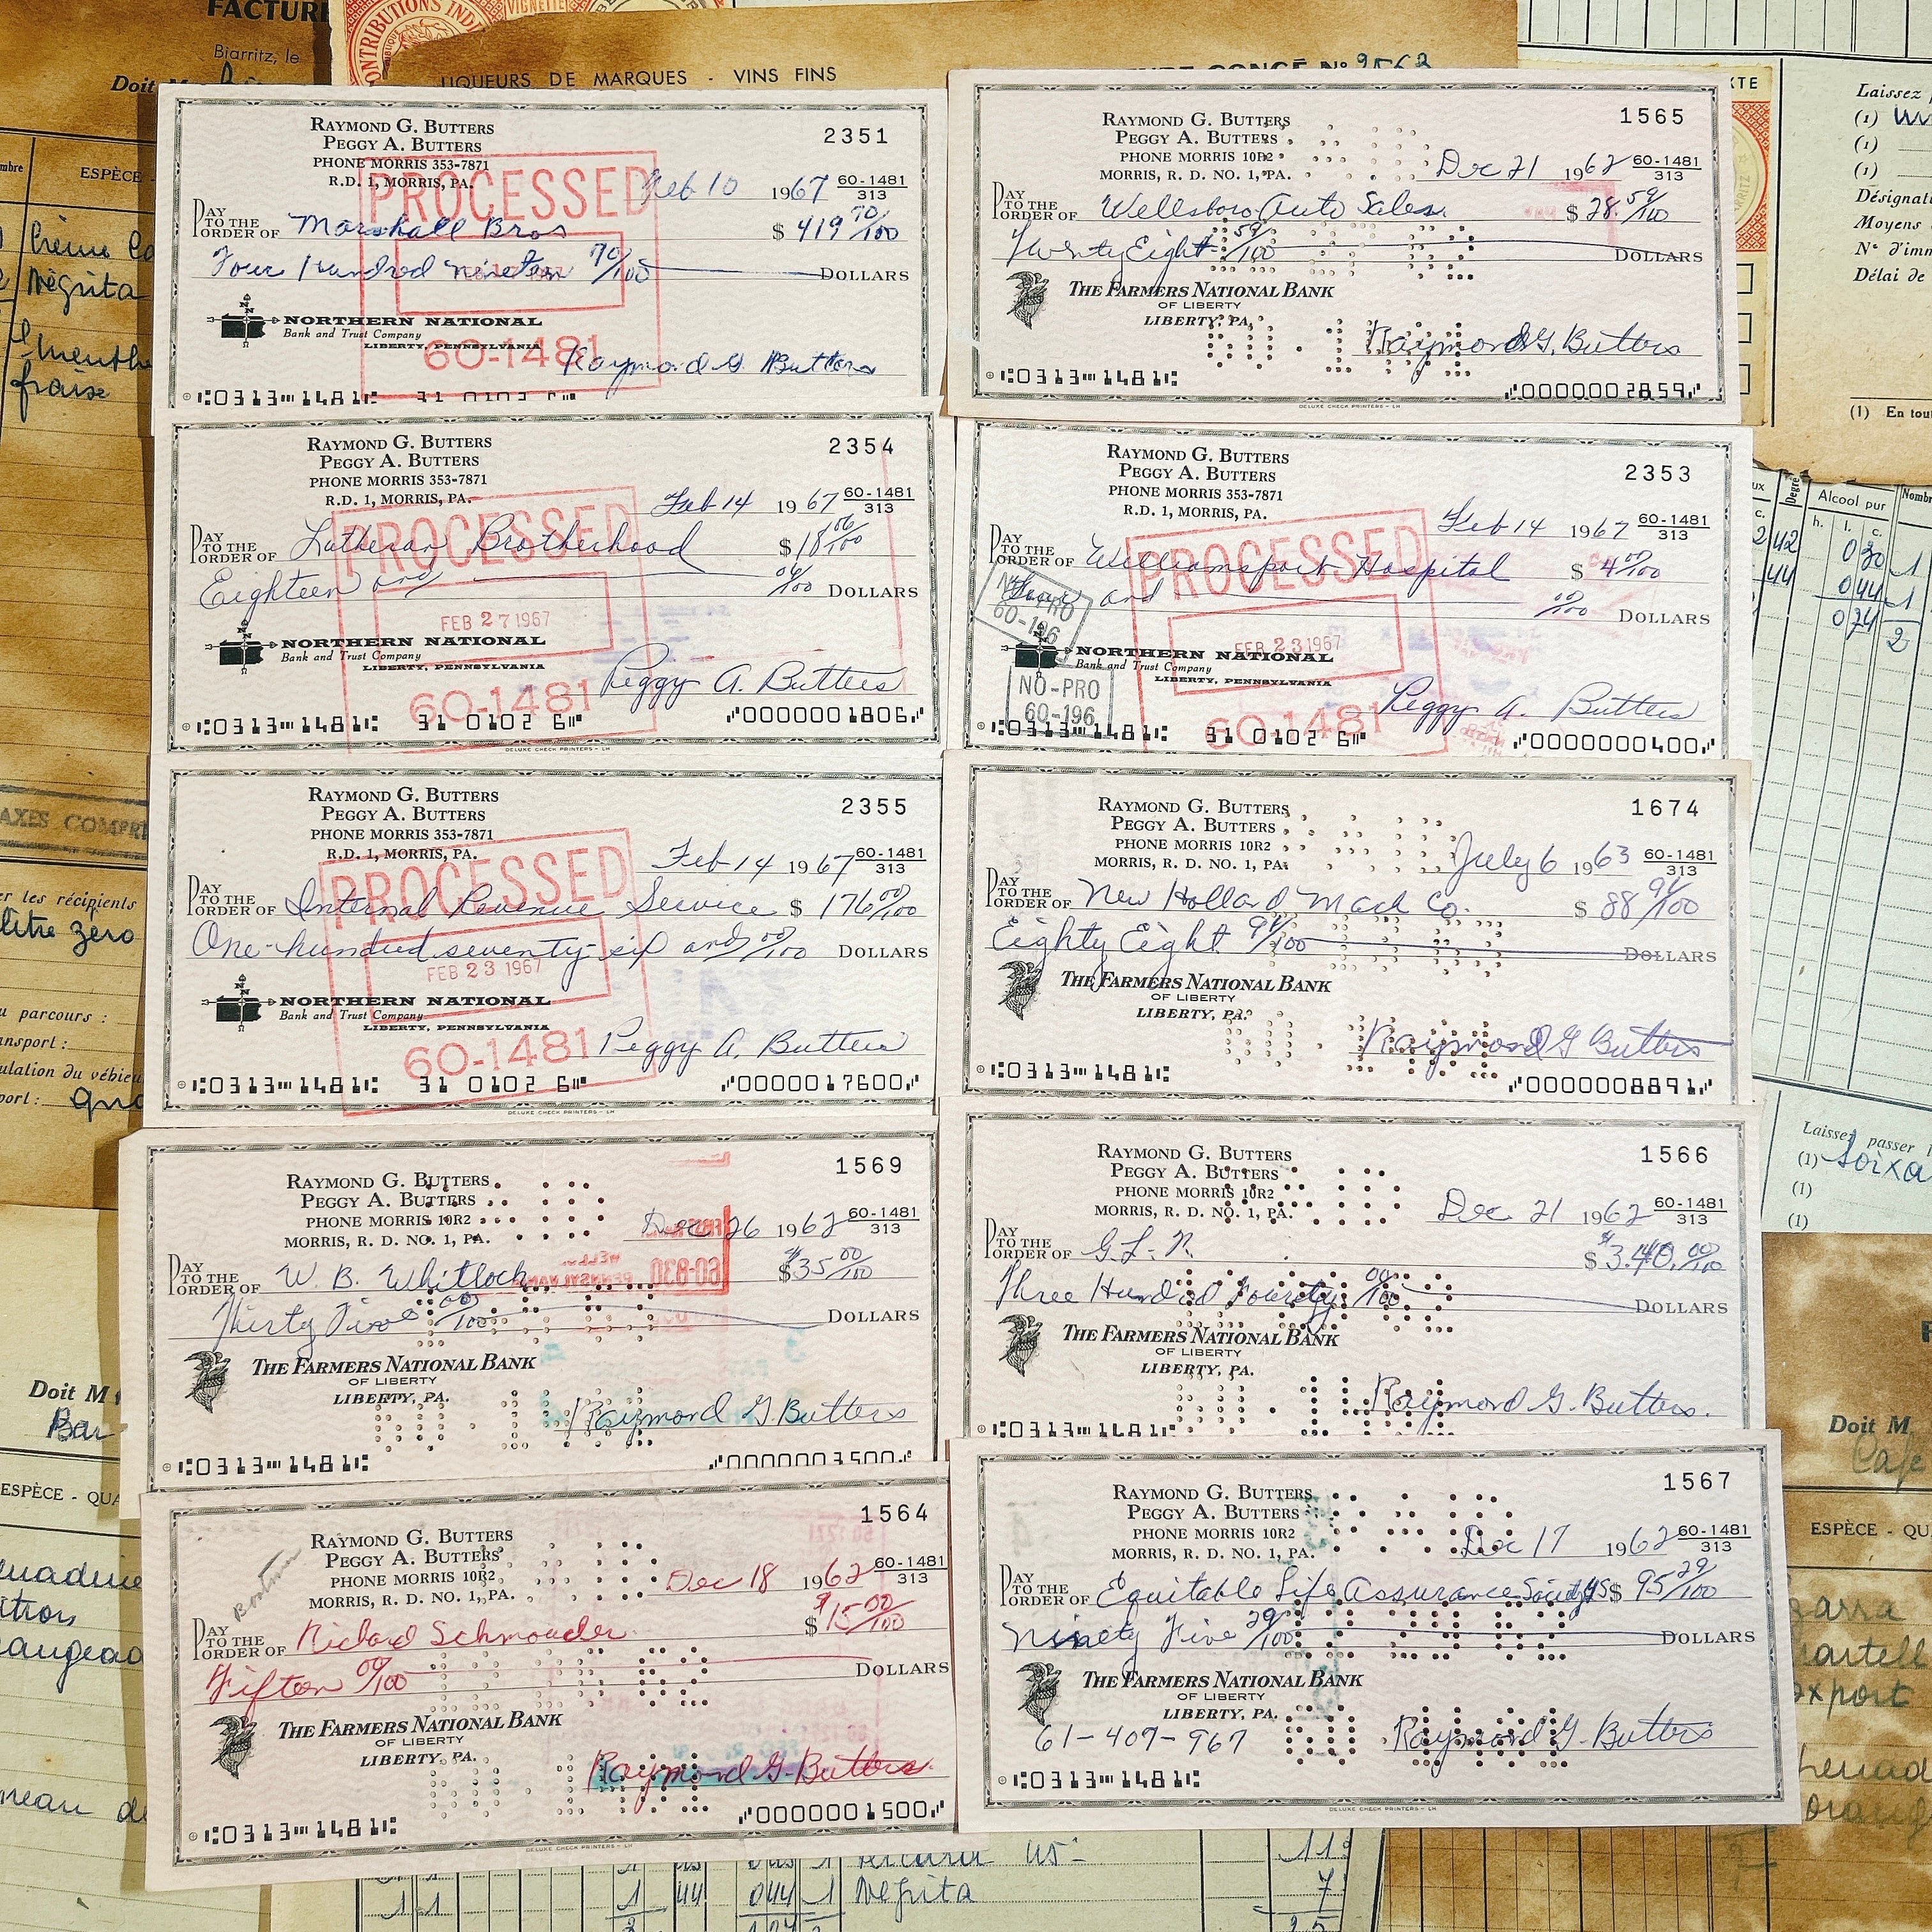 FACTURE
Biarritz, le
Doit M
CONTRIBUTIONS INDI
VIGNETTE
LIQUEURS DE MARQUES - VINS FINS
ESPÈCE
Négrita
fraise
RAYMOND G. BUTTERS
PEGGY A. BUTTERS
PHONE MORRIS 353-7871
R.D. 1, MORRIS, PA.
2351
Feb 10 1967 60-1481
313
PAY
TO THE
ORDER OF Marshall Bros $ 419 70/100
Four Hundred nineteen 70/100 DOLLARS
PROCESSED
NORTHERN NATIONAL
Bank and Trust Company
LIBERTY, PENNSYLVANIA
60-1481
Raymond G. Butters
⑆0313⑉1481⑆ 31 0102 6⑈
RAYMOND G. BUTTERS
PEGGY A. BUTTERS
PHONE MORRIS 10R2
MORRIS, R. D. NO. 1, PA.
1565
Dec 21 1962 60-1481
313
PAY
TO THE
ORDER OF Wellsboro Auto Sales $ 28. 59/100
Twenty Eight 59/100 DOLLARS
THE FARMERS NATIONAL BANK
OF LIBERTY
LIBERTY, PA.
Raymond G. Butters
⑆0313⑉1481⑆ ⑇0000002859⑇
DELUXE CHECK PRINTERS - LH
RAYMOND G. BUTTERS
PEGGY A. BUTTERS
PHONE MORRIS 353-7871
R.D. 1, MORRIS, PA.
2354
Feb 14 1967 60-1481
313
PAY
TO THE
ORDER OF Lutheran Brotherhood $ 18 06/100
Eighteen and 06/100 DOLLARS
PROCESSED
FEB 27 1967
NORTHERN NATIONAL
Bank and Trust Company
LIBERTY, PENNSYLVANIA
60-1481
Peggy A. Butters
⑆0313⑉1481⑆ 31 0102 6⑈ ⑇0000001806⑇
DELUXE CHECK PRINTERS - LH
RAYMOND G. BUTTERS
PEGGY A. BUTTERS
PHONE MORRIS 353-7871
R.D. 1, MORRIS, PA.
2353
Feb 14 1967 60-1481
313
PAY
TO THE
ORDER OF Williamsport Hospital $ 4 00/100
Four and 00/100 DOLLARS
PROCESSED
FEB 23 1967
NO-PRO
60-196
NORTHERN NATIONAL
Bank and Trust Company
LIBERTY, PENNSYLVANIA
NO-PRO
60-196
60-1481
Peggy A. Butters
⑆0313⑉1481⑆ 31 0102 6⑈ ⑇0000000400⑇
RAYMOND G. BUTTERS
PEGGY A. BUTTERS
PHONE MORRIS 353-7871
R.D. 1, MORRIS, PA.
2355
Feb 14 1967 60-1481
313
PAY
TO THE
ORDER OF Internal Revenue Service $ 176 00/100
One-hundred seventy six and 00/100 DOLLARS
PROCESSED
FEB 23 1967
NORTHERN NATIONAL
Bank and Trust Company
LIBERTY, PENNSYLVANIA
60-1481
Peggy A. Butters
⑆0313⑉1481⑆ 31 0102 6⑈ ⑇0000017600⑇
DELUXE CHECK PRINTERS - LH
RAYMOND G. BUTTERS
PEGGY A. BUTTERS
PHONE MORRIS 10R2
MORRIS, R. D. NO. 1, PA.
1674
July 6 1963 60-1481
313
PAY
TO THE
ORDER OF New Holland Mach Co. $ 88 91/100
Eighty Eight 91/100 DOLLARS
THE FARMERS NATIONAL BANK
OF LIBERTY
LIBERTY, PA.
Raymond G Butters
⑆0313⑉1481⑆ ⑇0000008891⑇
RAYMOND G. BUTTERS
PEGGY A. BUTTERS
PHONE MORRIS 10R2
MORRIS, R. D. NO. 1, PA.
1569
Dec 26 1962 60-1481
313
PAY
TO THE
ORDER OF W. B. Whitlock $ 35 00/100
Thirty Five 00/100 DOLLARS
THE FARMERS NATIONAL BANK
OF LIBERTY
LIBERTY, PA.
Raymond G. Butters
⑆0313⑉1481⑆ ⑇0000003500⑇
RAYMOND G. BUTTERS
PEGGY A. BUTTERS
PHONE MORRIS 10R2
MORRIS, R. D. NO. 1, PA.
1566
Dec 21 1962 60-1481
313
PAY
TO THE
ORDER OF G.L.N. $ 340. 00/100
Three Hundred Fourty 00/100 DOLLARS
THE FARMERS NATIONAL BANK
OF LIBERTY
LIBERTY, PA.
Raymond G. Butters.
⑆0313⑉1481⑆
RAYMOND G. BUTTERS
PEGGY A. BUTTERS
PHONE MORRIS 10R2
MORRIS, R. D. NO. 1, PA.
1564
Dec 18 1962 60-1481
313
PAY
TO THE
ORDER OF Richard Schmouder $ 15 00/100
Fifton 00/100 DOLLARS
THE FARMERS NATIONAL BANK
OF LIBERTY
LIBERTY, PA.
Raymond G. Butters
⑆0313⑉1481⑆ ⑇0000001500⑇
DELUXE CHECK PRINTERS - LH
RAYMOND G. BUTTERS
PEGGY A. BUTTERS
PHONE MORRIS 10R2
MORRIS, R. D. NO. 1, PA.
1567
Dec 17 1962 60-1481
313
PAY
TO THE
ORDER OF Equitable Life Assurance Society US $ 95 29/100
Ninety Five 29/100 DOLLARS
THE FARMERS NATIONAL BANK
OF LIBERTY
LIBERTY, PA.
61-407-967
Raymond G. Butters
⑆0313⑉1481⑆
DELUXE CHECK PRINTERS - LH
Laissez
(1)
(1)
(1)
Désignati
Moyens
N° d'imm
Délai de
(1) En tout
Degré
Alcool pur
Nombre
Laissez passer
(1) soixa
(1)
(1)
Doit M
Café
ESPÈCE - QU
TAXES COMPRI
er les récipients
litre zéro
u parcours :
ansport :
ulation du véhicu
port :
Doit M
Bar
ESPÈCE - QUA
Négrita